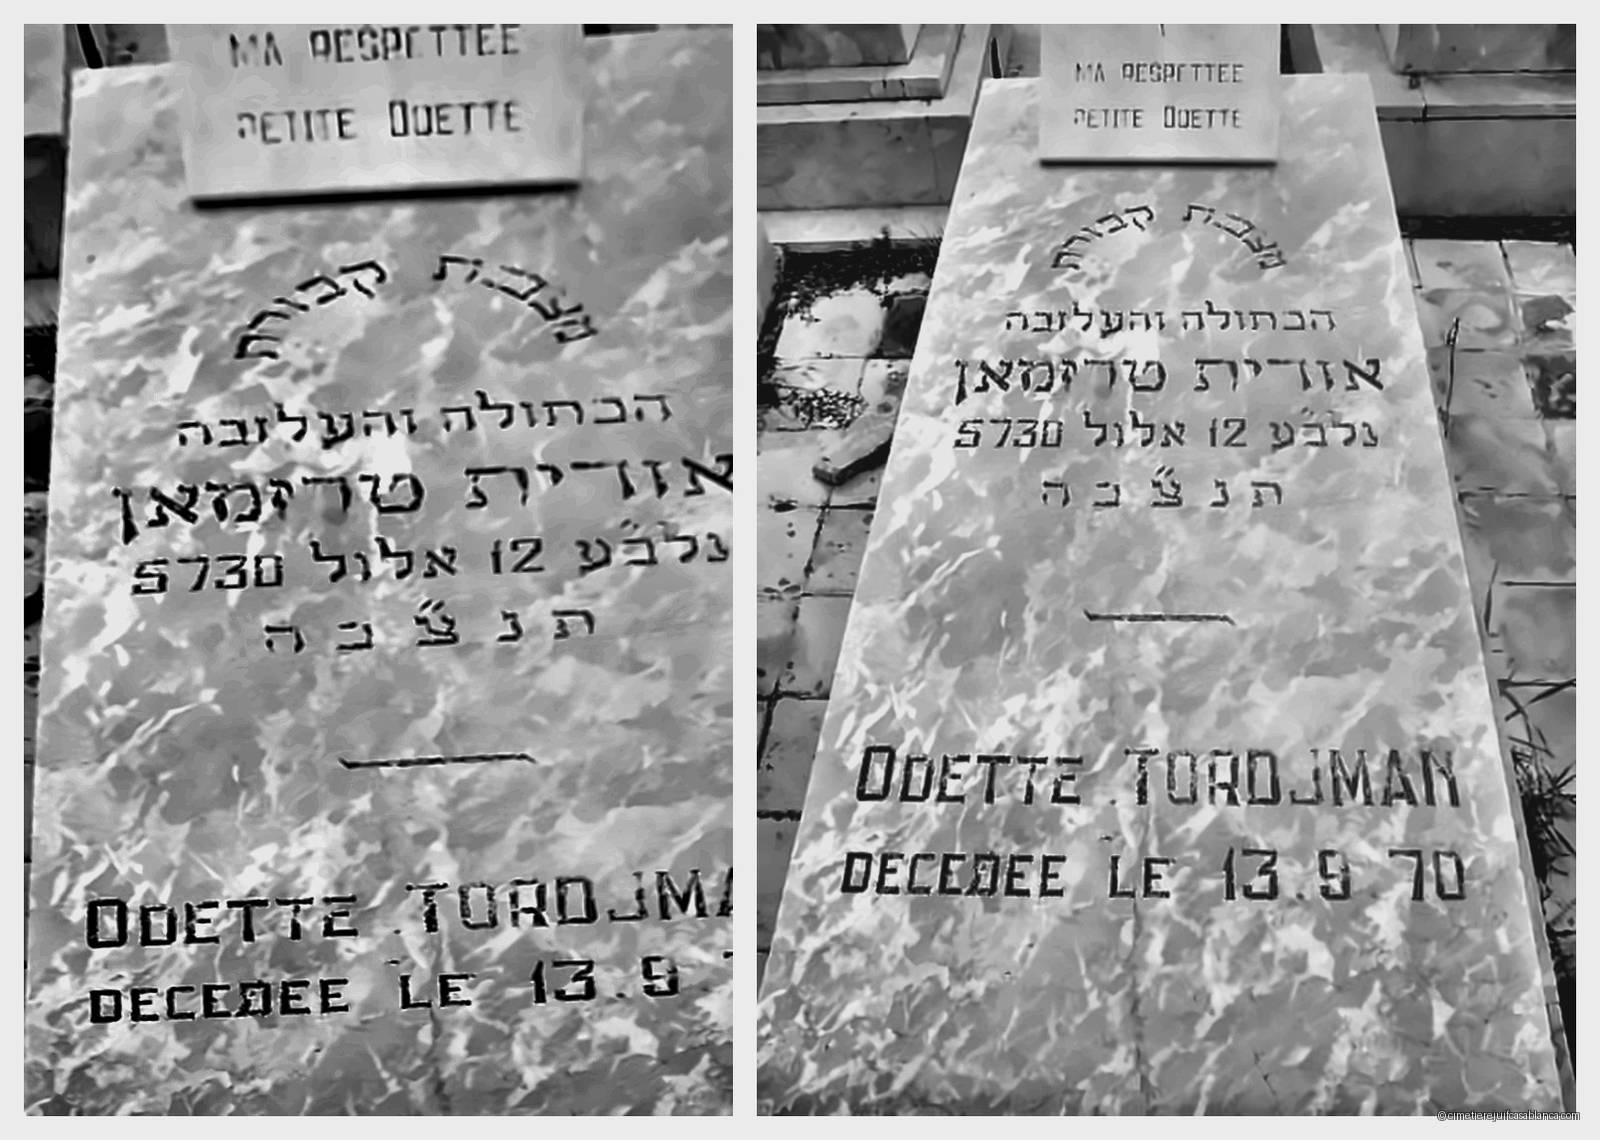 MA RESPETTEE
PETITE ODETTE
מצבת קבורת
הבתולה והעלובה
אודית טרזמאן
נלב״ע 12 אלול 5730
ת נ צ״ ב ה
ODETTE TORDJMA
DECEDEE LE 13.9
MA RESPETTEE
PETITE ODETTE
מצבת קבורת
הבתולה והעלובה
אודית טרזמאן
נלב״ע 12 אלול 5730
ת נ צ״ ב ה
ODETTE TORDJMAN
DECEDEE LE 13.9 70
©cimetierejuifcasablanca.com